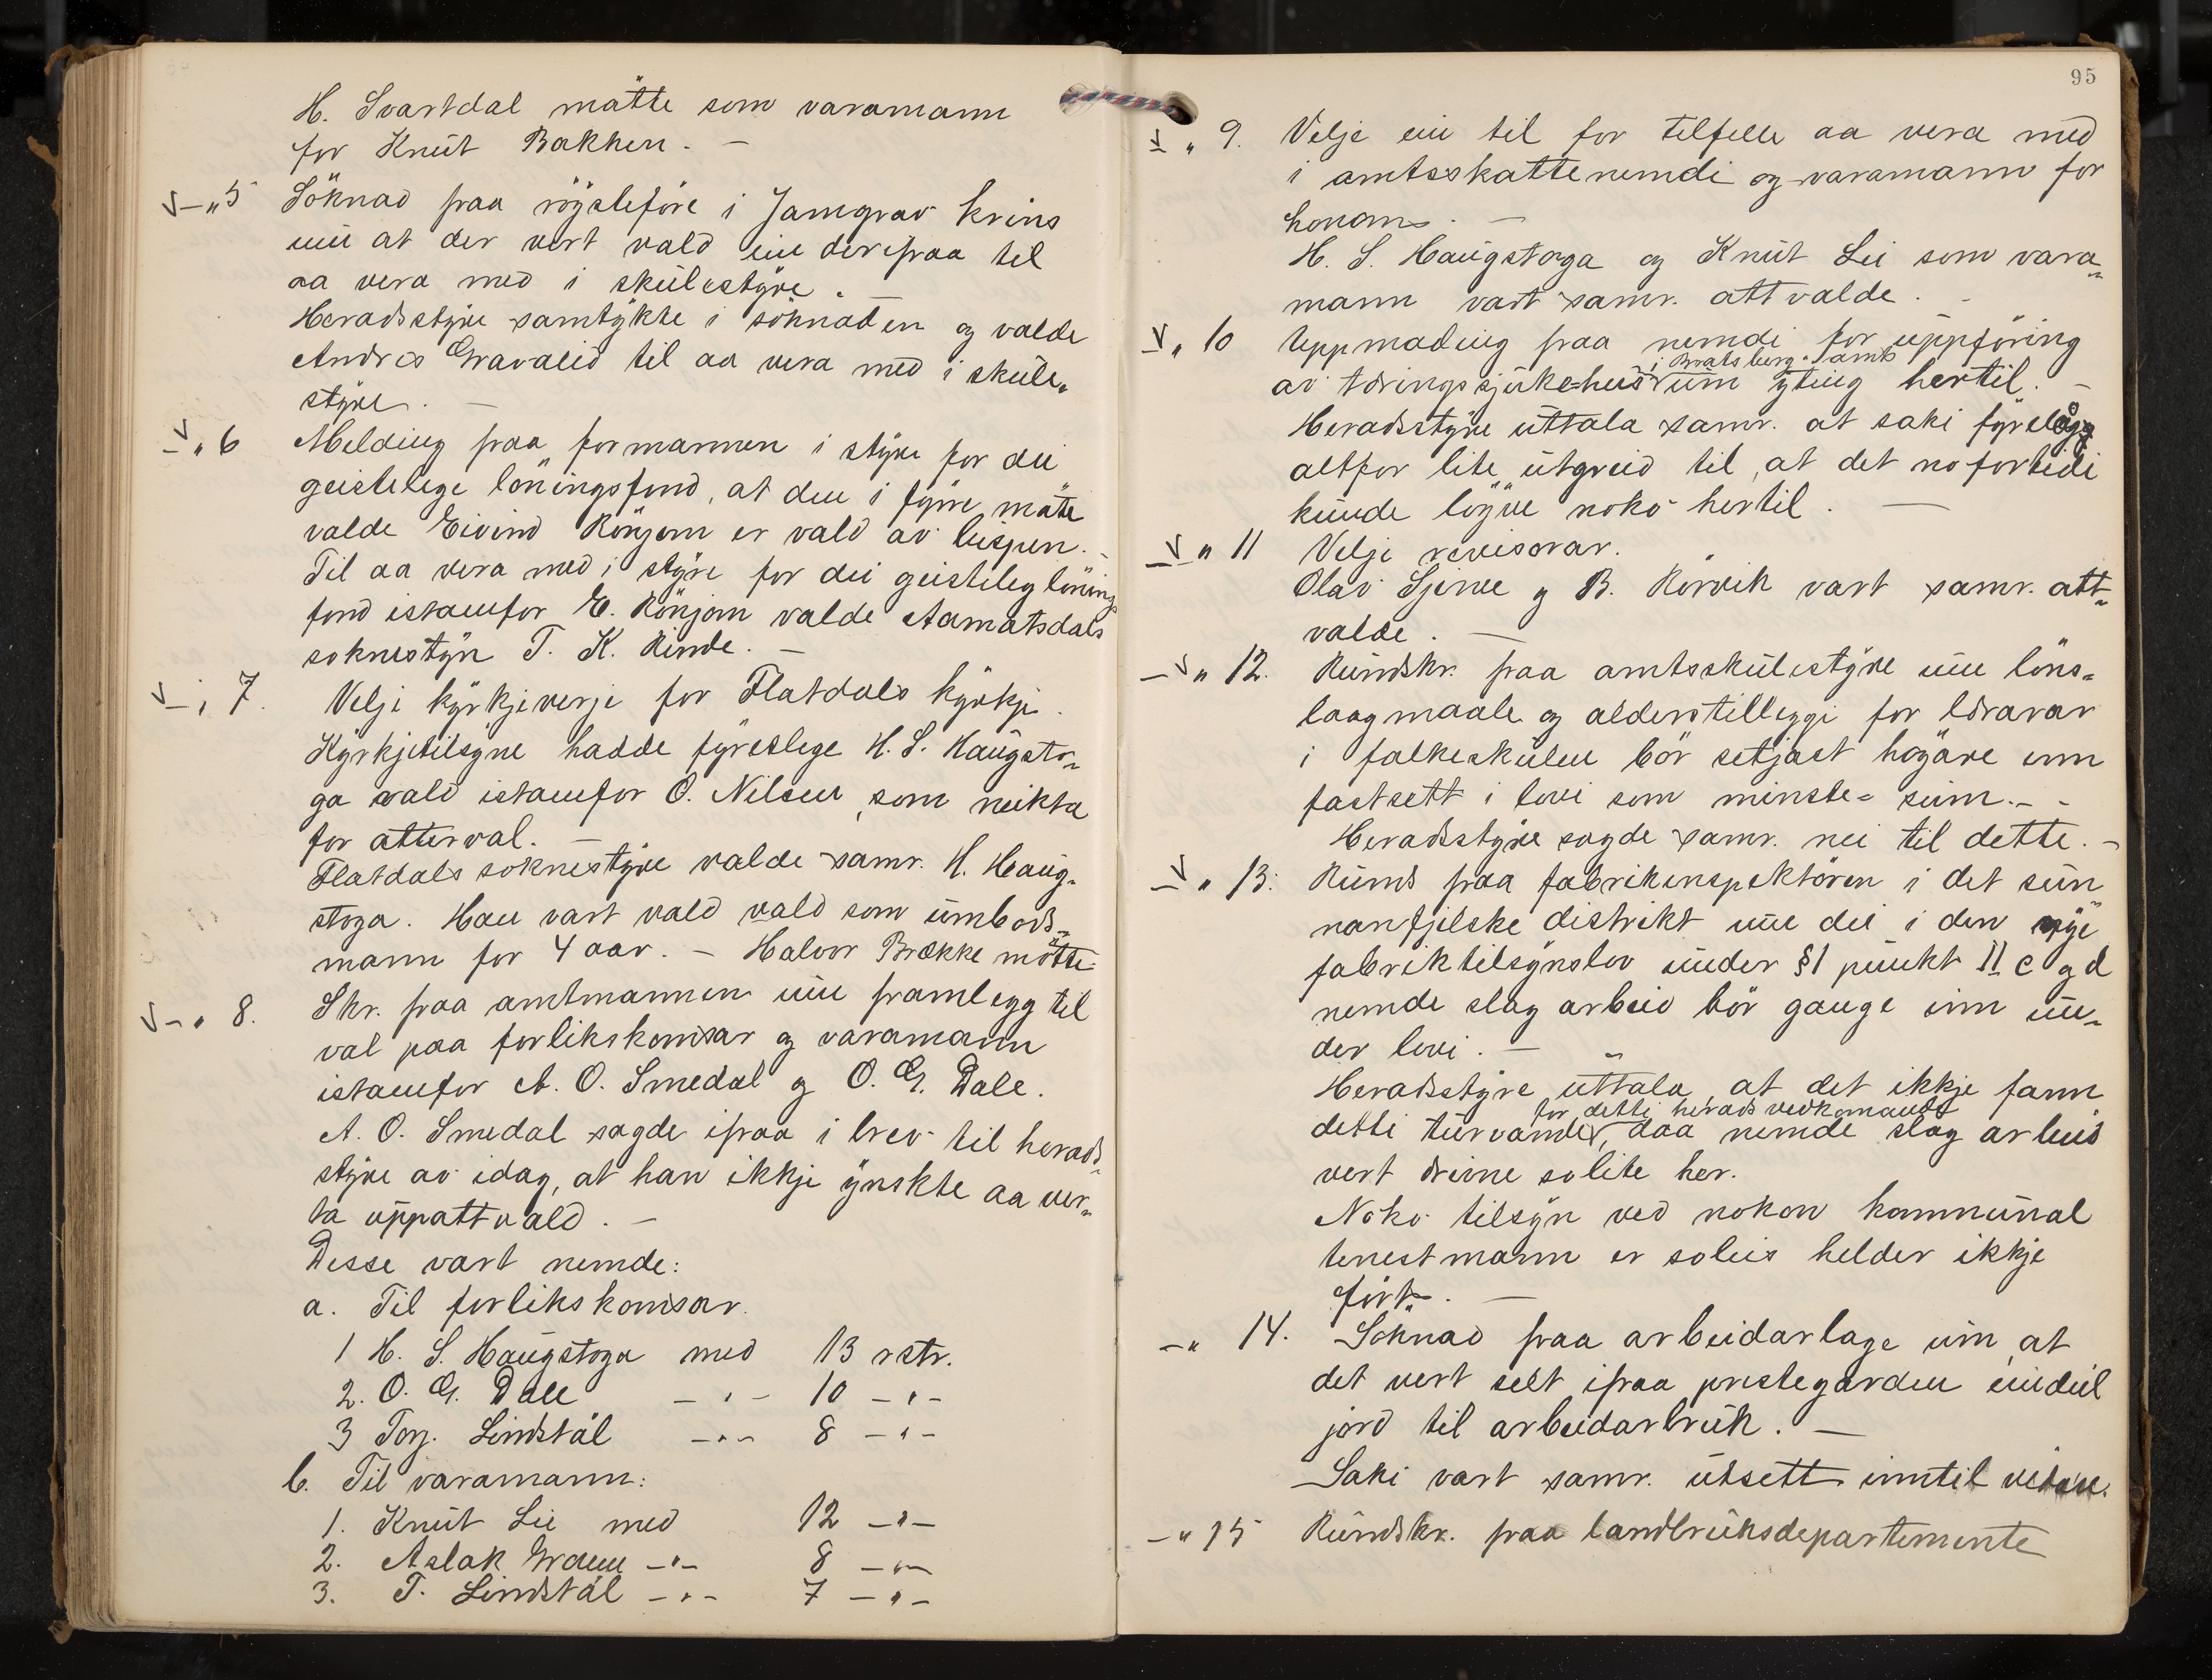 H. Svartdal mätte som varamann
for Knut Bakken. —
V — „ 5 Söknad fraa röysteföre i Jamgrav krins
um at der vert vald ein derifraa til
aa vera med i skulestyre. —
Heradsstyre samtykte i söknaden og valde
Andres Gravalid til aa vera med i skule„
styre. —
V — „ 6 Melding fraa formannen i styre for dei
geistelege löningsfond, at den i fyrre mäte
valde Eivind Rönjom er vald av bispen. —
Til aa vera med i styre for dei geisteleg lönings
fond istaenfor E. Rönjom valde Aamatsdals
soknestyre T. K. Rinde. —
V — „ 7. Velje kyrkjeverje for Flatdals kyrkje.
Kyrkjetilsyne hadde fyreslege H. S. Haugsto„
ga vald istaenfor O. Nilsen, som neikta
for atterval. —
Flatdals soknestyre valde samr. H. Haug„
stoga. Han vart vald vald som umbods„
mann for 4 aar. — Halvor Brække mötte
V — „ 8. Skr. fraa amtmannen um framlegg til
val paa forlikskomisar og varamann
istaenfor A. O. Smedal og O. G. Dale.
A. O. Smedal sagde ifraa i brev til herads„
styre av idag, at han ikkje ynskte aa ver„
ta uppattvald. —
Desse vart nemde:
a. Til forlikskomisar.
1 H. S. Haugstoga med 13 rstr.
2. O. G. Dale — „ — 10 — „ —
3 Torj. Lindstäl — „ — 8 — „ —
b. Til varamann:
1. Knut Lie med 12 — „ —
2. Aslak — „ — 8 — „ —
3. T. Lindstäl — „ — 7 — „ —
95
V „ 9. Velje ein til for tilfelle aa vera med
i amtsskattenemdi og varamann for
honom. —
H. S. Haugstoga og Knut Lie som vara„
mann vart samr. attvalde. —
V „ 10 Uppmoding fraa nemdi for uppföring
i Bratsberg amt
av tæringssjuke=hus um yting hertil. —
Heradsstyre uttala samr. at saki fyrelåg
altfor lite utgreid til, at det no forbidi
kunde löyve noko hertil. —
V „ 11 Velje revisorar.
Olav Sjerve og B. Rörvik vart samr. att„
valde. —
— V „ 12. Rundskr. fraa amtsskulestyre um löns=
laagmaale og alderstilleggi for lærarar
i folkeskulen bör setjast högäre enn
fastsett i lovi som minste= sum. — -
Heradsstyre sagde samr. nei til dette. —
— V „ 13. Runds fraa fabrikinspektören i det sun
nanfjelske distrikt um dei i den nye
fabriktilsynslov under §1 punkt II c og d
nemde slag arbeid bör gange inn un„
der lovi. —
Heradsstyre uttala, at det ikkje fann
for detti herads vedkomande
detti turvande, daa nemde slag arbeid
vert drivne solite her.
Noko tilsyn ved nokon kommunal
tenestmann er soleis helder ikkje
fört. —
— „ 14. Söknad fraa arbeidarlage um, at
det vert selt ifraa prestegarden eindeil
jord til arbeidarbruk. —
Saki vart samr. utsett inntil vidare.
— „ 15 Rundskr. fraa landbruksdepartemente